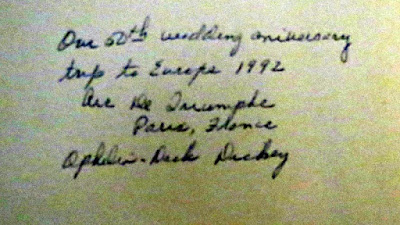 Our 50th wedding anniversary
trip to Europe 1992
Arc de Triumphe
Paris, France
Ophelia - Dick Dickey